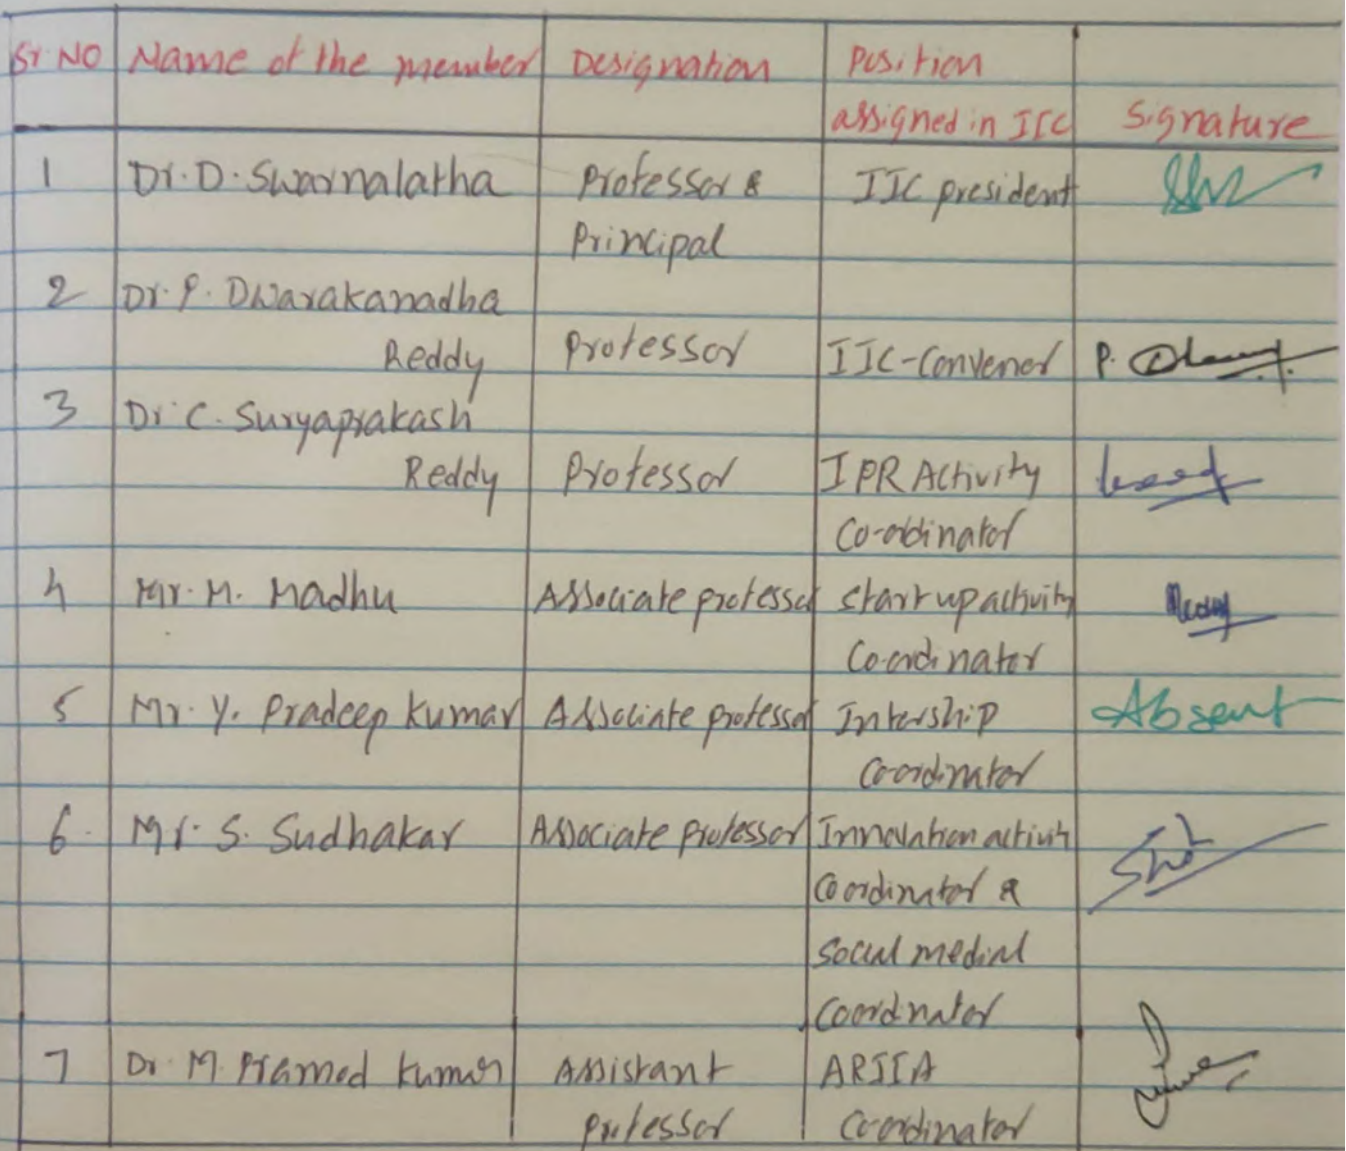 Sr. NO Name of the member Designation Position
assigned in IIC Signature
1 Dr. D. Swarnalatha Professor & IIC president
Principal
2 Dr. P. Dwarakanadha
Reddy Professor IIC-Convenor P.
3 Dr. C. Suryaprakash
Reddy Professor IPR Activity
Co-ordinator
4 Mr. M. Madhu Associate professor Start up activity
Co-ordinator
5 Mr. Y. Pradeep Kumar Associate professor Intership Absent
Co-ordinator
6. Mr. S. Sudhakar Associate Professor Innovation activity
Coordinator &
Social medial
Coordinator
7 Dr. M. Pramod Kumar Assistant ARIIA
professor Co-ordinator